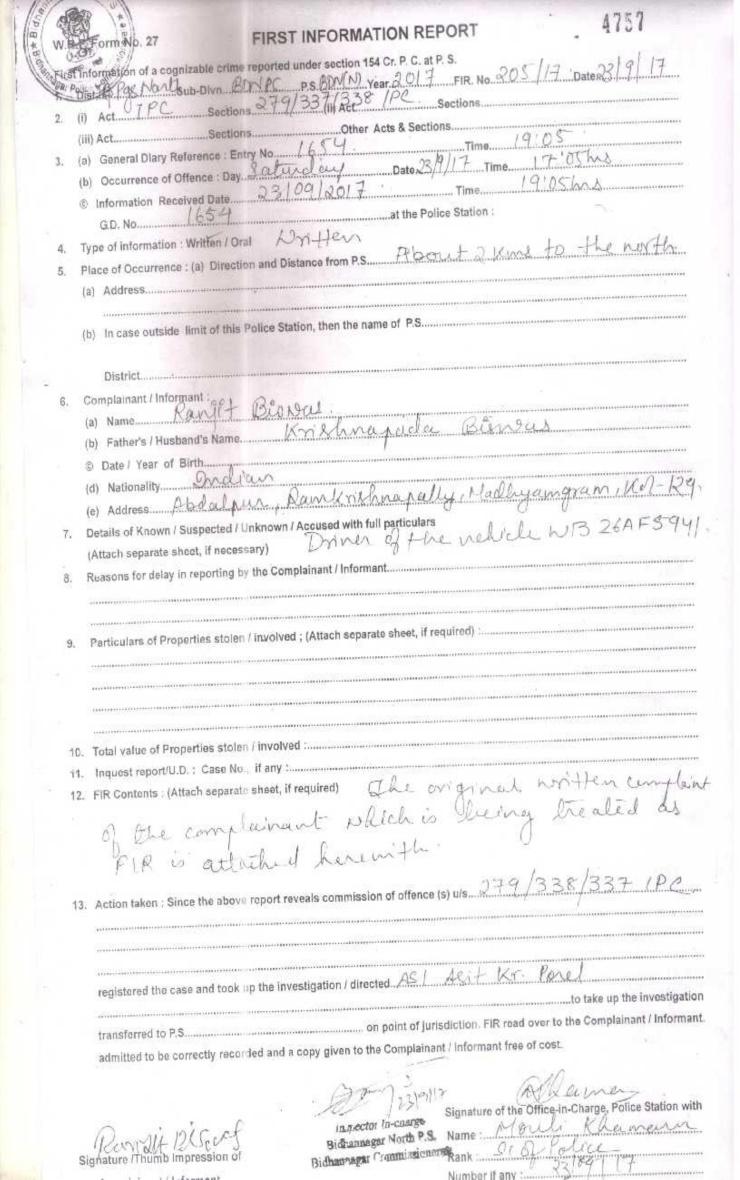 4757
FIRST INFORMATION REPORT
W.B. Form No. 27
First Information of a cognizable crime reported under section 154 Cr. P. C. at P. S.
Pgs North Sub-Dlvn. BDNPC P.S. BDN(N) Year 2017 FIR. No. 205/17 Date 23/9/17
2. (i) Act IPC Sections 279/337/338 IPC (ii) Act Sections
(iii) Act Sections Other Acts & Sections
3. (a) General Diary Reference : Entry No. 1654 Time 19:05
(b) Occurrence of Offence : Day Saturday Date 23/9/17 Time 17:05hrs
© Information Received Date 23/09/2017 Time 19:05hrs
G.D. No. 1654 at the Police Station :
4. Type of information : Written / Oral Written
5. Place of Occurrence : (a) Direction and Distance from P.S. About 2 Kms to the north
(a) Address
(b) In case outside limit of this Police Station, then the name of P.S.
District
6. Complainant / Informant :
(a) Name Ranjit Biswas
(b) Father's / Husband's Name Krishnapada Biswas
© Date / Year of Birth
(d) Nationality Indian
(e) Address Abdalpur, Ramkrishnapally, Madhyamgram, Kol-129.
7. Details of Known / Suspected / Unknown / Accused with full particulars
(Attach separate sheet, if necessary) Driver of the vehicle WB 26AF5941.
8. Reasons for delay in reporting by the Complainant / Informant
9. Particulars of Properties stolen / involved ; (Attach separate sheet, if required) :
10. Total value of Properties stolen / involved :
11. Inquest report/U.D. : Case No., if any :
12. FIR Contents : (Attach separate sheet, if required) The original written complaint
of the complainant which is being treated as
FIR is attached herewith.
13. Action taken : Since the above report reveals commission of offence (s) u/s 279/338/337 IPC
registered the case and took up the investigation / directed ASI Asit Kr. Porel
to take up the investigation
transferred to P.S. on point of jurisdiction. FIR read over to the Complainant / Informant.
admitted to be correctly recorded and a copy given to the Complainant / Informant free of cost.
23/9/17
Signature of the Office-in-Charge, Police Station with
Inspector In-charge
Bidhannagar North P.S. Name : Mouli Khamaru
Ranjit Biswas
Signature /Thumb Impression of
Bidhannagar Commissionerate Rank : SI of Police
Number if any : 23/09/17